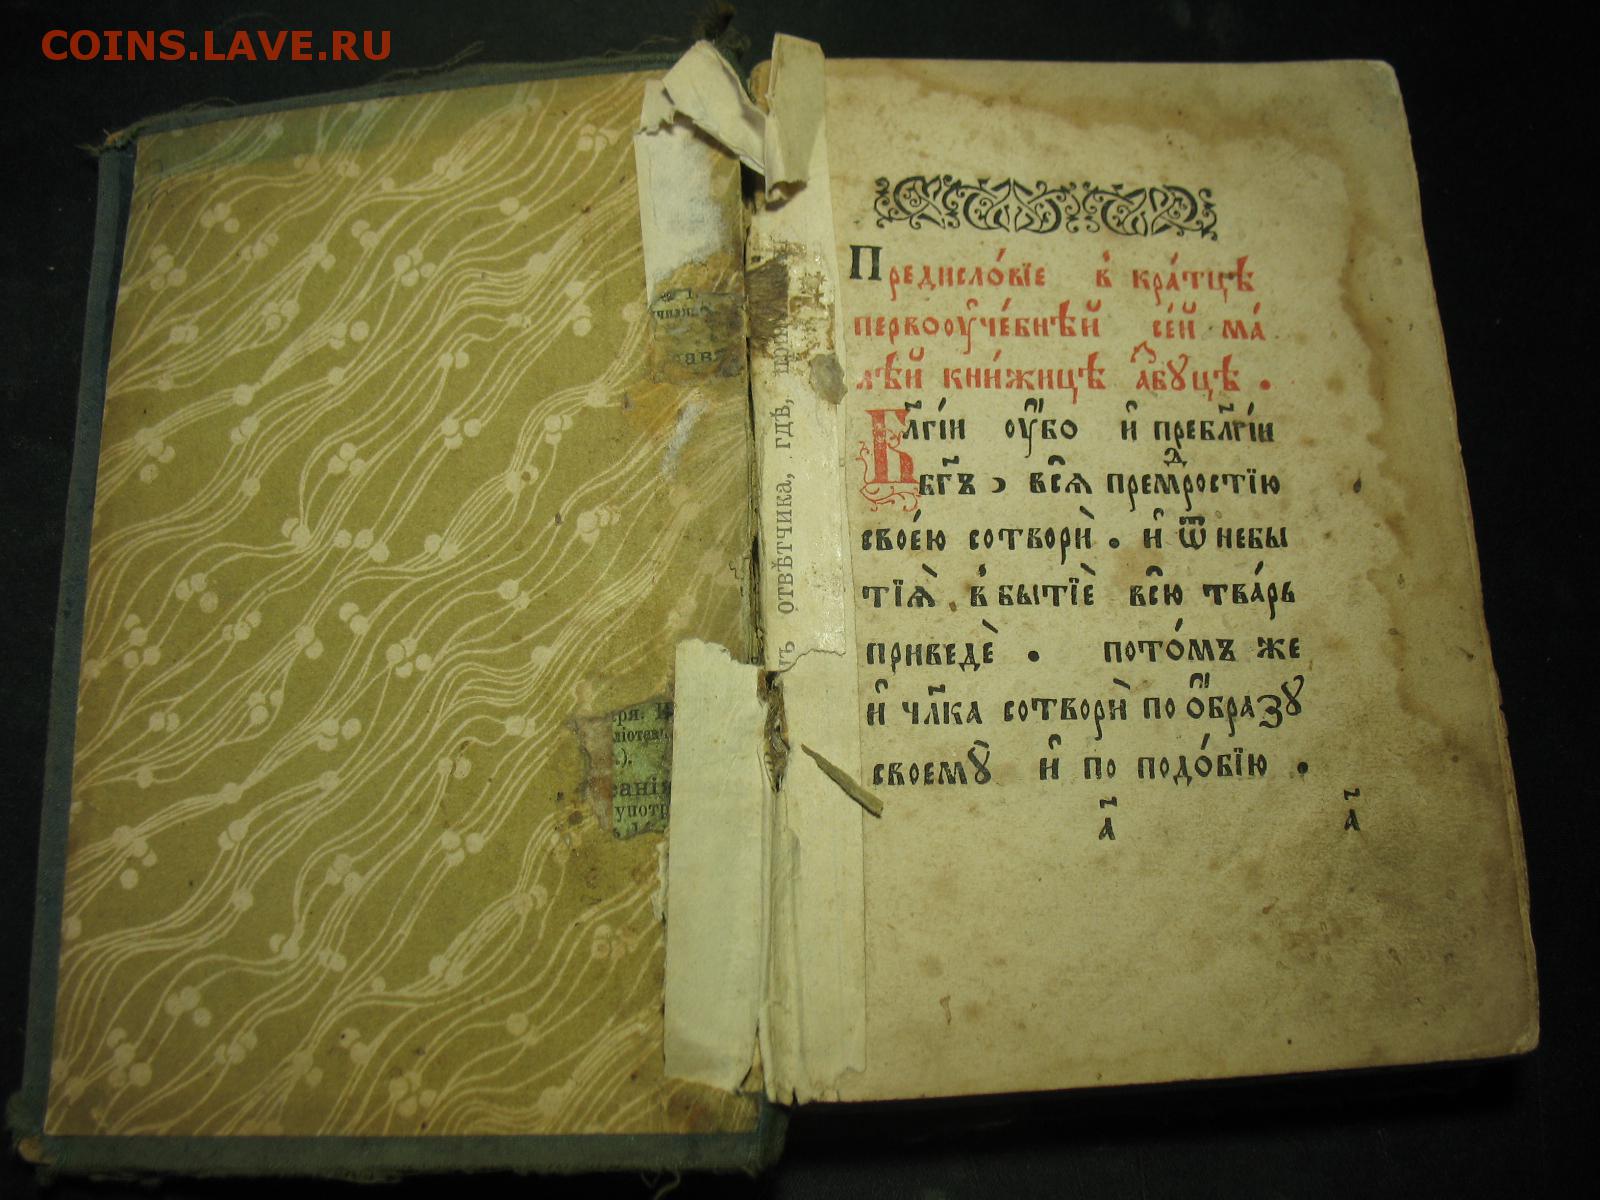 COINS.LAVE.RU
отвѣтчика, гдѣ,
Предисло́вїе в̾ кра́тцѣ
первоѹче́бнѣй се́й ма́
лѣй кни́жицѣ а҆́збꙋцѣ .
Бл҃гі́й ѹ҆́бо и҆ пребл҃гі́й
бг҃ъ , всѧ̀ премⷣростїю
свое́ю сотворѝ . и҆ ѿ небы
тїѧ̀ в̾ бытїѐ всю̀ тва́рь
приведѐ . пото́мъ же
и҆ чл҃ка сотворѝ по ѻ҆́бразꙋ
своемꙋ̀ и҆ по подо́бїю .
а҃ а҃